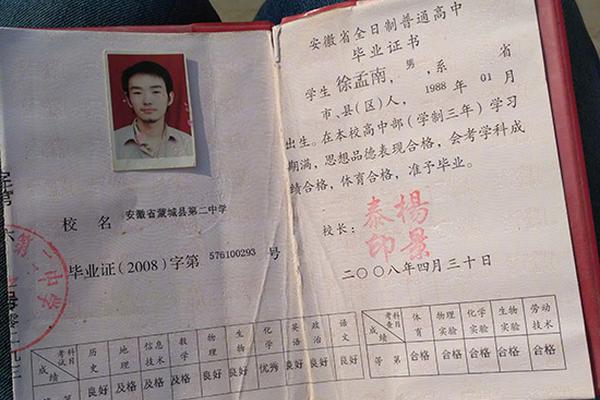 校名 安徽省蒙城县第二中学
毕业证(2008)字第 576100293 号
考试科目 历史 地理 信息技术 数学 物理 生物 化学 英语 政治 语文
成绩 良好 及格 及格 及格 良好 良好 优秀 良好 良好 良好
安徽省全日制普通高中
毕业证书
学生 徐孟南，男，系 省
市、县(区)人，1988 年 01 月
出生。在本校高中部(学制三年)学习
期满，思想品德表现合格，会考学科成
绩合格，体育合格，准予毕业。
校长：
楊景泰印
二〇〇八年四月三十日
考查科目 体育 物理实验 化学实验 生物实验 劳动技术
等第 合格 合格 合格 合格 合格